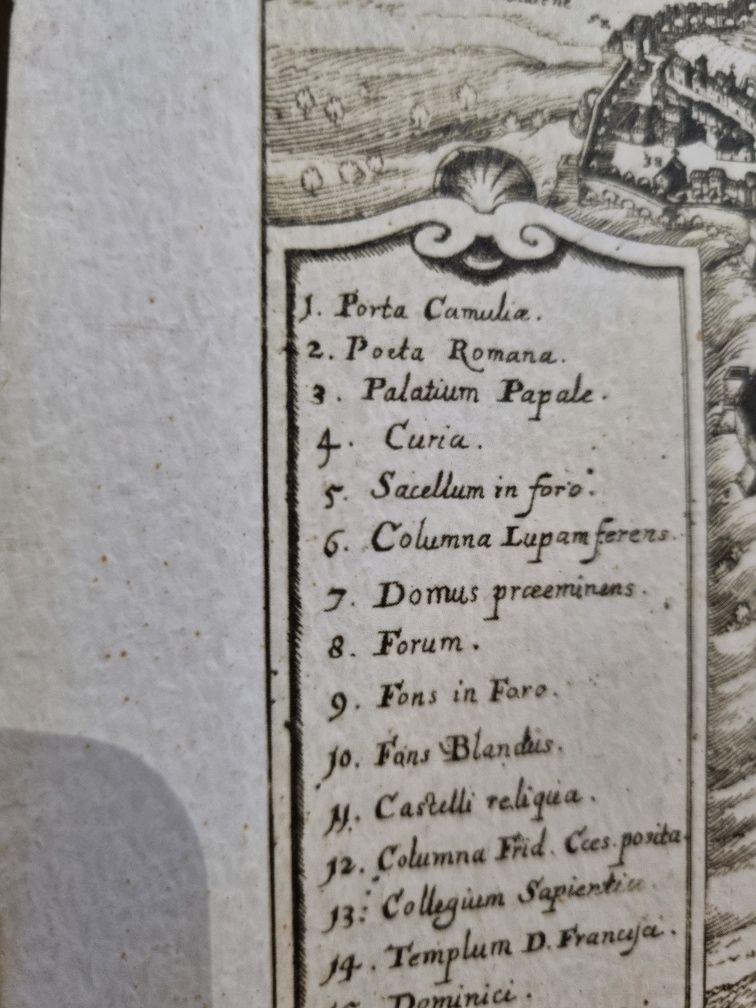 52
38
1. Porta Camuliæ.
2. Poeta Romana.
3. Palatium Papale.
4. Curia.
5. Sacellum in foro.
6. Columna Lupam ferens.
7. Domus præeminens.
8. Forum.
9. Fons in Foro.
10. Fons Blandus.
11. Castelli reliquia.
12. Columna Frid. Cæs. posita.
13. Collegium Sapientiæ.
14. Templum D. Francisci.
Dominici.